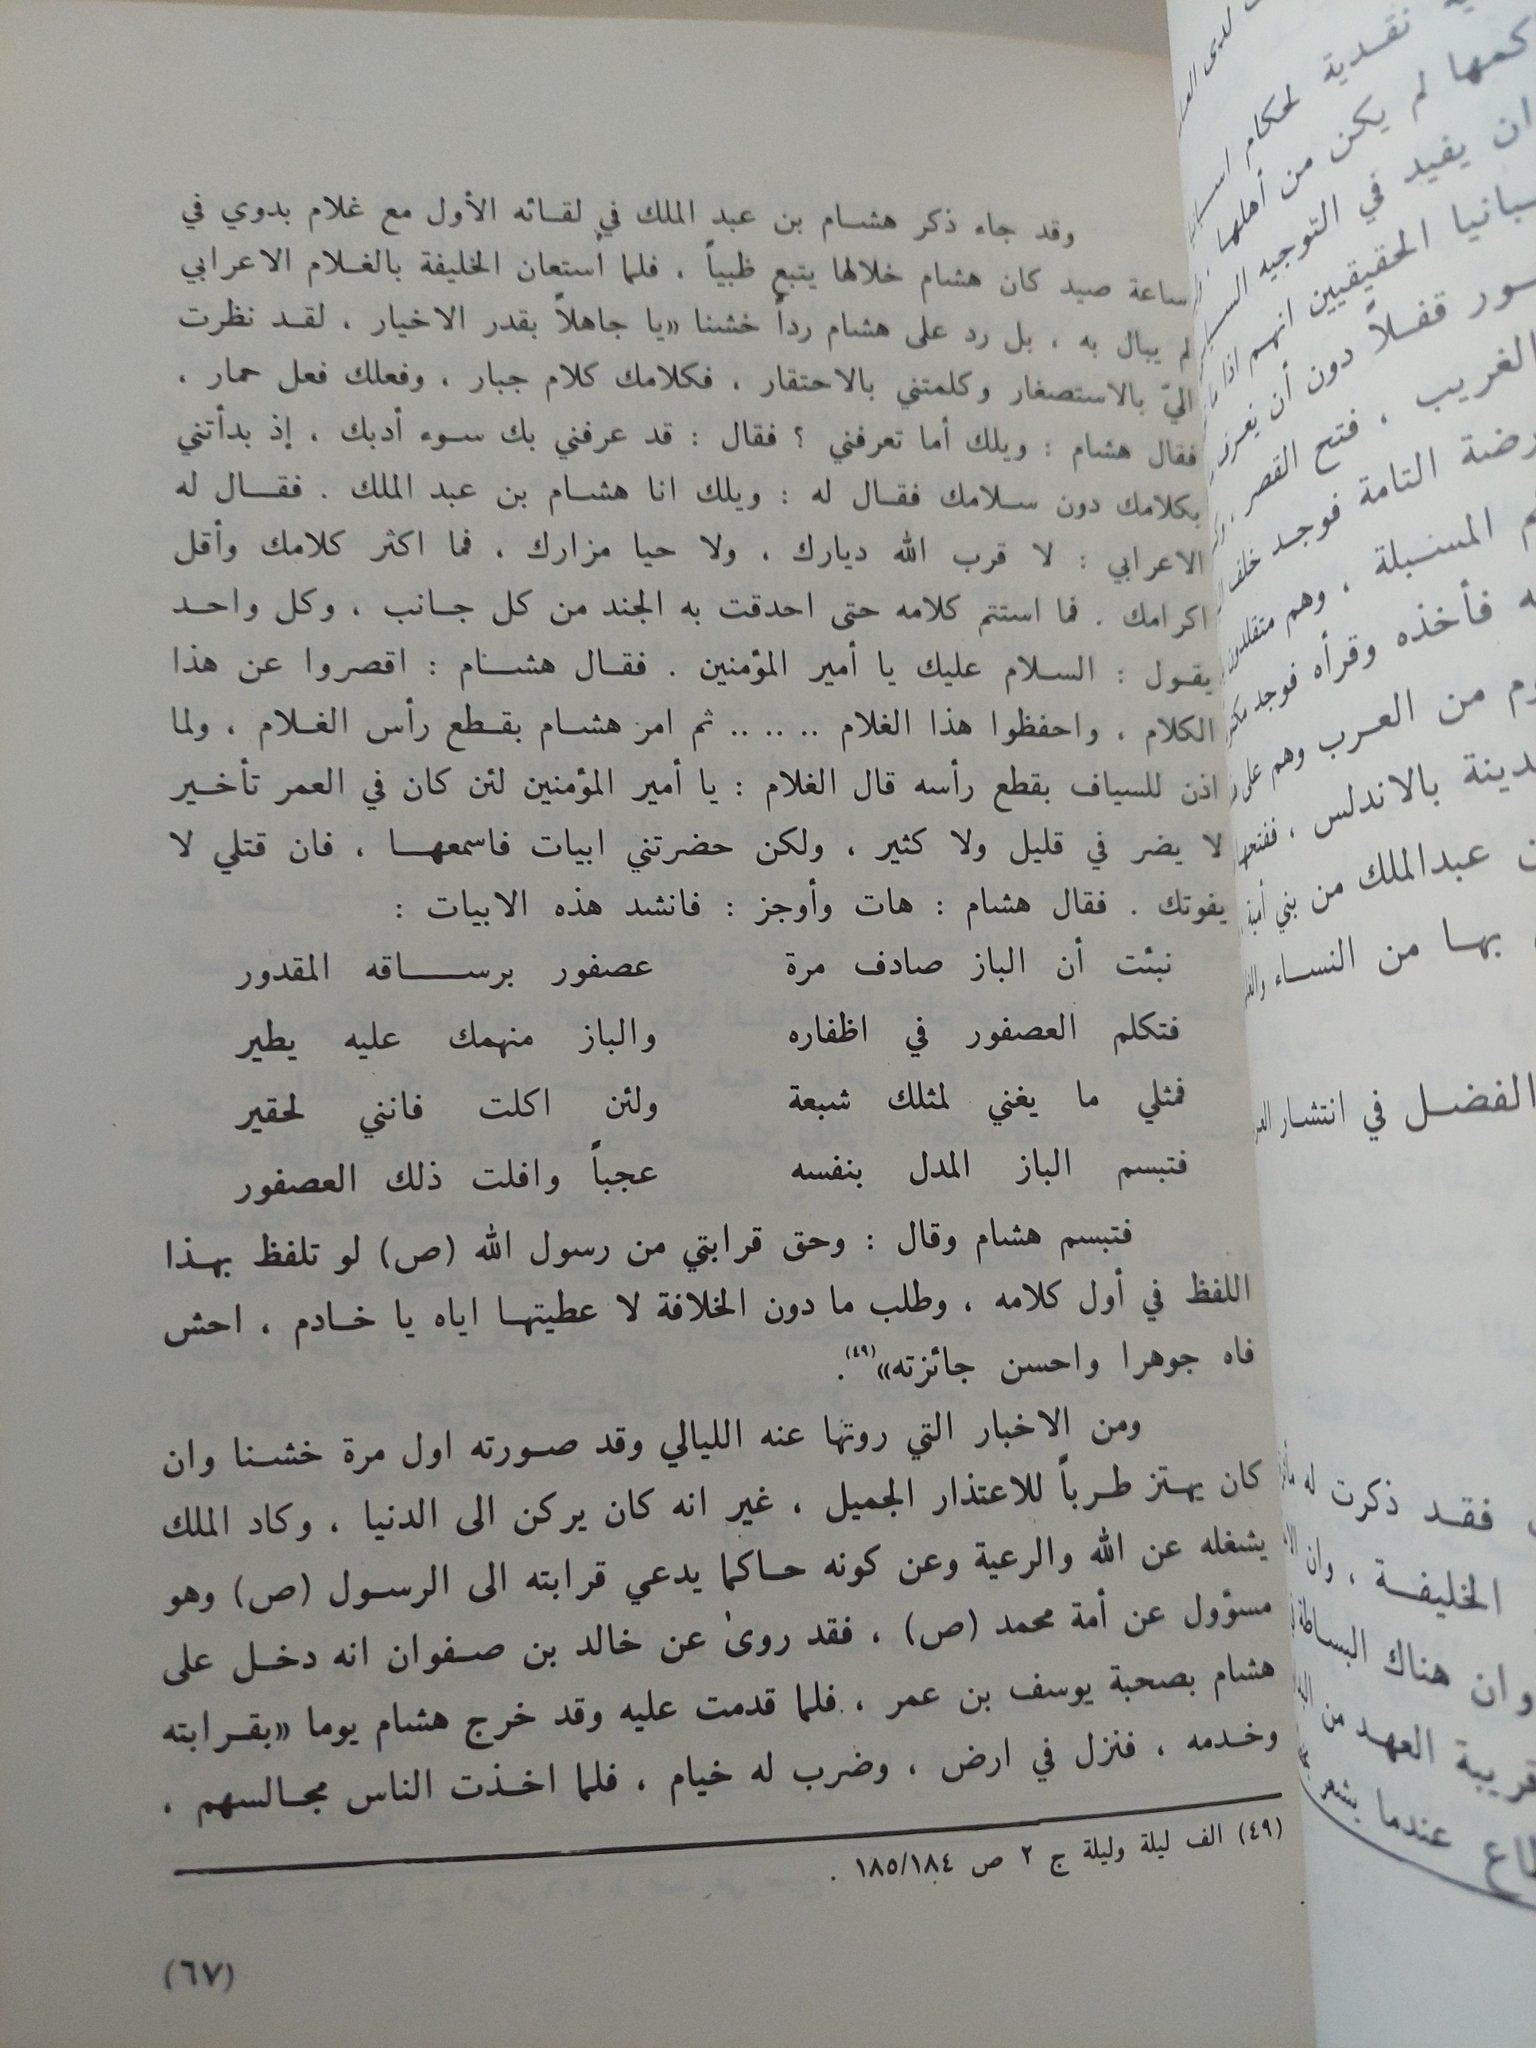 وقد جاء ذكر هشام بن عبد الملك في لقائه الأول مع غلام بدوي في
ساعة صيد كان هشام خلالها يتبع ظبياً ، فلما أستعان الخليفة بالغلام الاعرابي
لم يبال به ، بل رد على هشام رداً خشنا «يا جاهلاً بقدر الاخيار ، لقد نظرت
اليّ بالاستصغار وكلمتني بالاحتقار ، فكلامك كلام جبار ، وفعلك فعل حمار ،
فقال هشام : ويلك أما تعرفني ؟ فقال : قد عرفني بك سوء أدبك ، إذ بدأتني
بكلامك دون سلامك فقال له : ويلك انا هشام بن عبد الملك . فقال له
الاعرابي : لا قرب الله ديارك ، ولا حيا مزارك ، فما اكثر كلامك وأقل
اكرامك . فما استتم كلامه حتى احدقت به الجند من كل جانب ، وكل واحد
يقول : السلام عليك يا أمير المؤمنين . فقال هشام : اقصروا عن هذا
الكلام ، واحفظوا هذا الغلام .. .. .. ثم امر هشام بقطع رأس الغلام ، ولما
اذن للسياف بقطع رأسه قال الغلام : يا أمير المؤمنين لئن كان في العمر تأخير
لا يضر في قليل ولا كثير ، ولكن حضرتني ابيات فاسمعها ، فان قتلي لا
يفوتك . فقال هشام : هات وأوجز : فانشد هذه الابيات :
نبئت أن الباز صادف مرة عصفور برساقه المقدور
فتكلم العصفور في اظفاره والباز منهمك عليه يطير
فمثلي ما يغني لمثلك شبعة ولئن اكلت فانني لحقير
فتبسم الباز المدل بنفسه عجباً وافلت ذلك العصفور
فتبسم هشام وقال : وحق قرابتي من رسول الله (ص) لو تلفظ بهذا
اللفظ في أول كلامه ، وطلب ما دون الخلافة لا عطيتها اياه يا خادم ، احش
فاه جوهرا واحسن جائزته»(٤٩).
ومن الاخبار التي روتها عنه الليالي وقد صورته اول مرة خشنا وان
كان يهتز طرباً للاعتذار الجميل ، غير انه كان يركن الى الدنيا ، وكاد الملك
يشغله عن الله والرعية وعن كونه حاكما يدعي قرابته الى الرسول (ص) وهو
مسؤول عن أمة محمد (ص) ، فقد روىٰ عن خالد بن صفوان انه دخل على
هشام بصحبة يوسف بن عمر ، فلما قدمت عليه وقد خرج هشام يوما «بقرابته
وخدمه ، فنزل في ارض ، وضرب له خيام ، فلما اخذت الناس مجالسهم ،
(٤٩) الف ليلة وليلة ج ٢ ص ١٨٥/١٨٤ .
(٦٧)
نقدية لحكام
كمها لم يكن من أهلها
ان يفيد في التوجيه
الحقيقيين انهم اذا
قفلاً دون أن
الغريب ، فتح القصر
التامة فوجد خلف
المسبلة ، وهم
فأخذه وقرأه فوجد
من العرب وهم على
بالاندلس ، ففتحها
عبدالملك من بني أمية
بها من النساء
الفضل في انتشار
فقد ذكرت له
الخليفة ، وان
وان هناك البساطة
قريبة العهد من
عندما يشعر